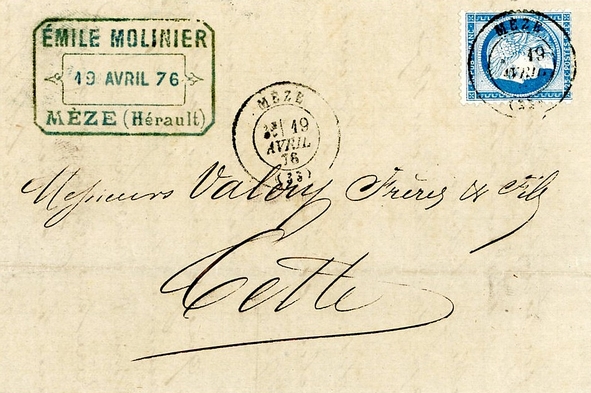 ÉMILE MOLINIER
19 AVRIL 76
MÈZE (Hérault)
MÈZE
19
AVRIL
(33)
MÈZE
19
AVRIL
76
(33)
Messieurs Valéry Frères & Fils
Cette